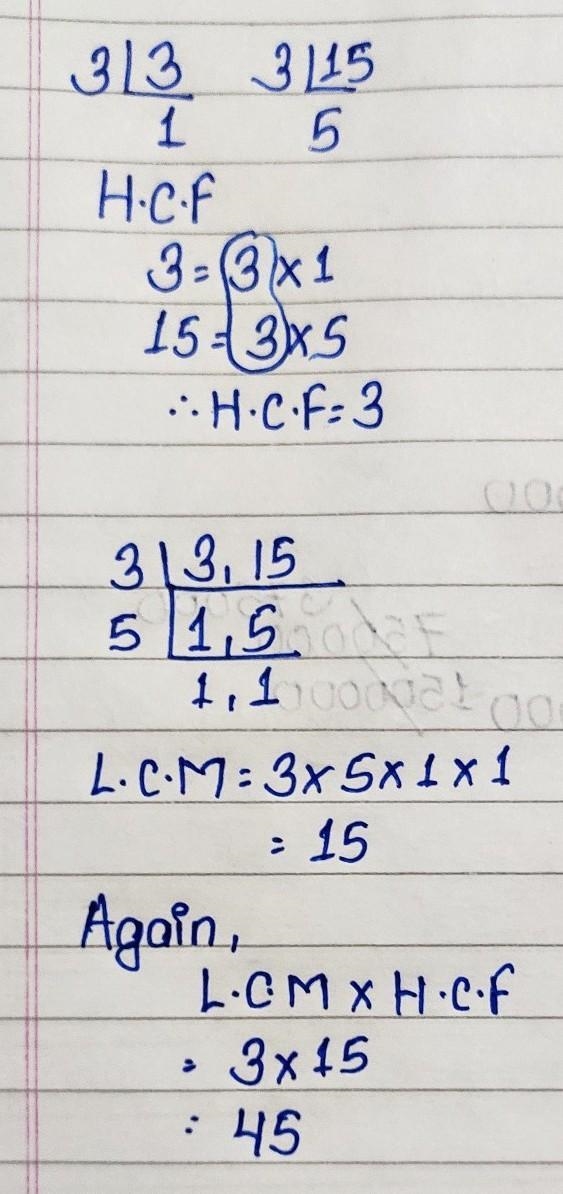 3 3 3 15
1 5
H.C.F
3 = 3 x 1
15 = 3 x 5
∴ H.C.F = 3
3 3, 15
5 1, 5
1, 1
L.C.M = 3 x 5 x 1 x 1
= 15
Again,
L.C.M x H.C.F
= 3 x 15
= 45